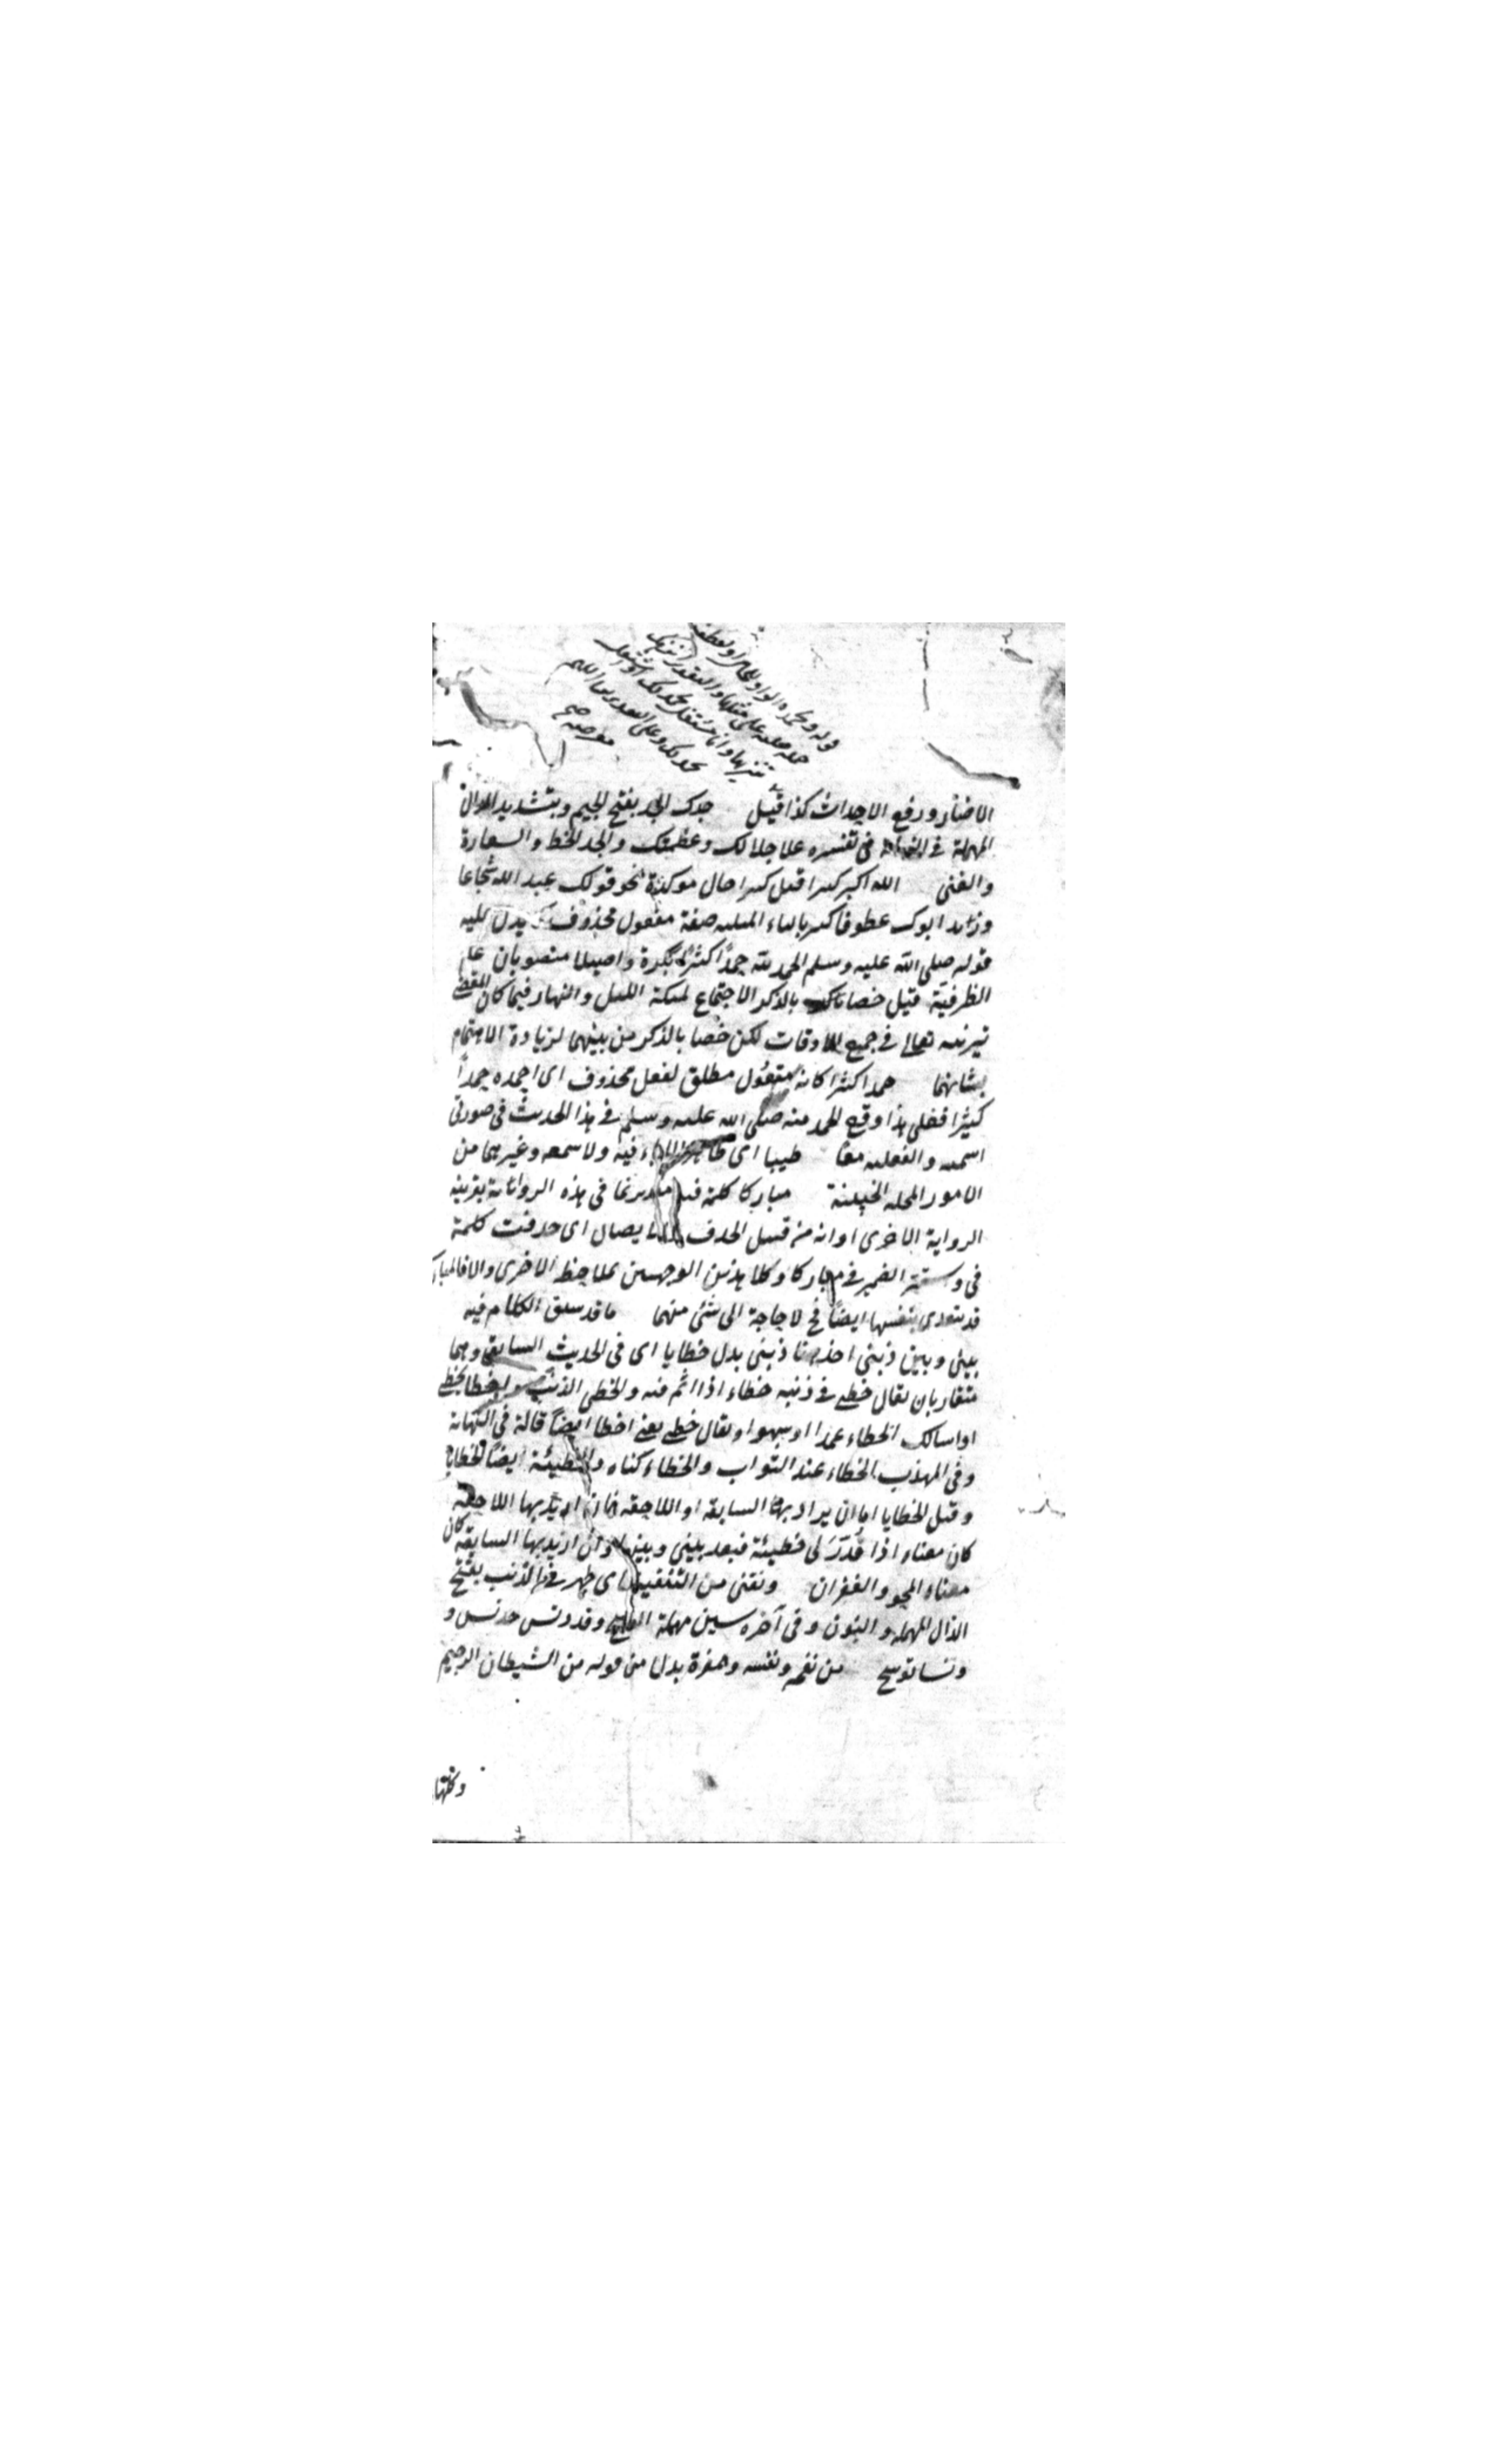 قوله وبحمده الواو للحال او لعطف
جملة على مثلها والتقدير
وانا مشتغل بحمدك او اشتغل
بحمدك وعلى التقديرين اللهم
معترضة صح
الاخبار ورفع الاحداث كذا قيل جدك الجد بفتح الجيم وبتشديد الدال
المهملة في النهاية في تفسيره علا جلالك وعظمتك والجد الحظ والسعادة
والغنى الله اكبر كبيرا قيل كبيرا حال موكدة نحو قولك عبد الله شجاعا
وزيد ابوك عطوفا كبير بالباء صفة مفعول محذوف يدل عليه
قوله صلى الله عليه وسلم الحمد لله حمدا كثيرا بكرة واصيلا منصوبان على
الظرفية قيل خصا بالذكر لاجتماع ملئكة الليل والنهار فيهما كان المقتضى
تنزيهه تعالى في جميع الاوقات لكن خصا بالذكر من بينهما لزيادة الاهتمام
بشانهما حمدا كثيرا كانه مفعول مطلق لفعل محذوف اى احمده حمدا
كثيرا فعلى هذا وقع الحمد منه صلى الله عليه وسلم في هذا الحديث في صورتى
اسمية والفعلية معا طيبا اى لا رياء فيه ولا سمعة وغيرهما من
الامور المخلة الخبيثة مباركا كلمة فيه في هذه الرواية بقرينة
الرواية الاخرى او انه من قبيل الحذف والايصال اى حذفت كلمة
في واستتر الضمير في مباركا وكلا هذين الوجهين بملاحظة الاخرى والا فالمبارك
قد يتعدى بنفسها ايضا فح لا حاجة الى شئ منهما ما قد سبق الكلام فيه
بينى وبين ذنبى اخذ هنا ذنبى بدل خطايا اى في الحديث السابق وهما
متقاربان يقال خطى في ذنبه خطاء اذا اثم فيه والخطى الذنب واخطا يخطى
اذا سلك الخطاء عمدا او سهوا ويقال خطى بمعنى اخطا ايضا قاله في النهاية
وفي المهذب الخطاء عند الثواب والخطاء كناه والخطيئة ايضا الخطايا ج
وقيل الخطايا اما ان يراد بها السابقة او اللاحقة فان اريد بها اللاحقة
كان معناه اذا قدر لى خطيئة فبعد بينى وبينها وان اريد بها السابقة كان
معناه المحو والغفران ونقنى من التنقية اى طهر في الذنب بفتح
الدال المهملة والنون وفي آخره سين مهملة الوسخ وقد دنس دنس و
دنسا توسخ من نفخه ونفثه وهمزه بدل من قوله من الشيطان الرجيم